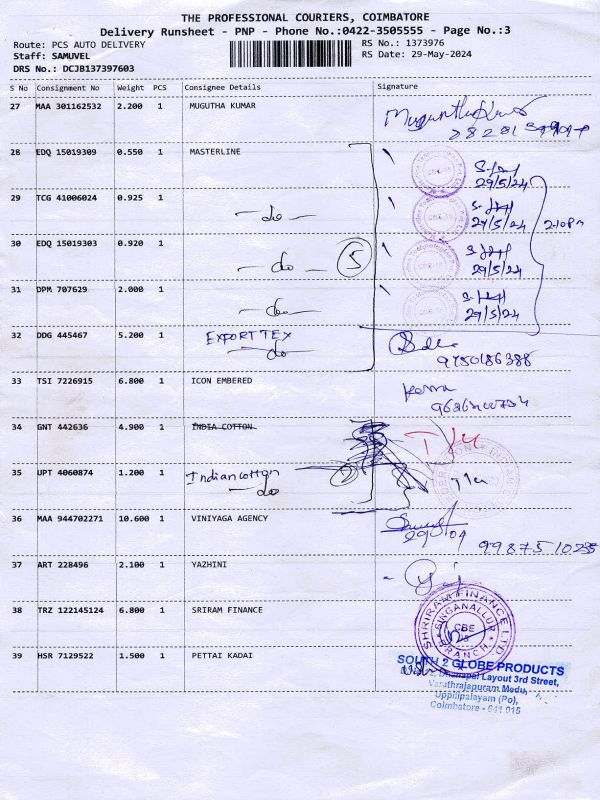 THE PROFESSIONAL COURIERS, COIMBATORE
Delivery Runsheet - PNP - Phone No.:0422-3505555 - Page No.:3
Route: PCS AUTO DELIVERY
RS No.: 1373976
Staff: SAMUVEL
RS Date: 29-May-2024
DRS No.: DCJB137397603
S No Consignment No Weight PCS Consignee Details Signature
27 MAA 301162532 2.200 1 MUGUTHA KUMAR
28 EDQ 15019309 0.550 1 MASTERLINE
29/5/24
29 TCG 41006024 0.925 1
do
29/5/24
2.10 pm
30 EDQ 15019303 0.920 1
do 5
29/5/24
31 DPM 707629 2.000 1
do
29/5/24
32 DDG 445467 5.200 1 EXPORT TEX
do
9750186388
33 TSI 7226915 6.800 1 ICON EMBERED
34 GNT 442636 4.900 1 INDIA COTTON
35 UPT 4060874 1.200 1 Indian cotton
do
36 MAA 944702271 10.600 1 VINIYAGA AGENCY
37 ART 228496 2.100 1 YAZHINI
38 TRZ 122145124 6.800 1 SRIRAM FINANCE
SHRIRAM FINANCE LTD
SINGANALLUR
CBE
BRANCH
39 HSR 7129522 1.500 1 PETTAI KADAI
SOUTH 2 GLOBE PRODUCTS
Layout 3rd Street,
Varathrajapuram Medu,
Uppilipalayam (Po),
Coimbatore - 641 015